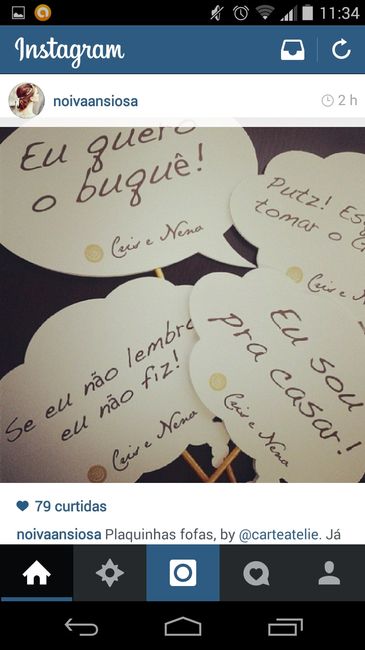 11:34
Instagram
noivaansiosa
2 h
Eu quero
o buquê!
Cris e Nena
Putz!
tomar o
Cris e Nena
Se eu não lembro
eu não fiz!
Cris e Nena
Eu sou
pra casar!
Cris e Nena
79 curtidas
noivaansiosa Plaquinhas fofas, by @carteatelie. Já